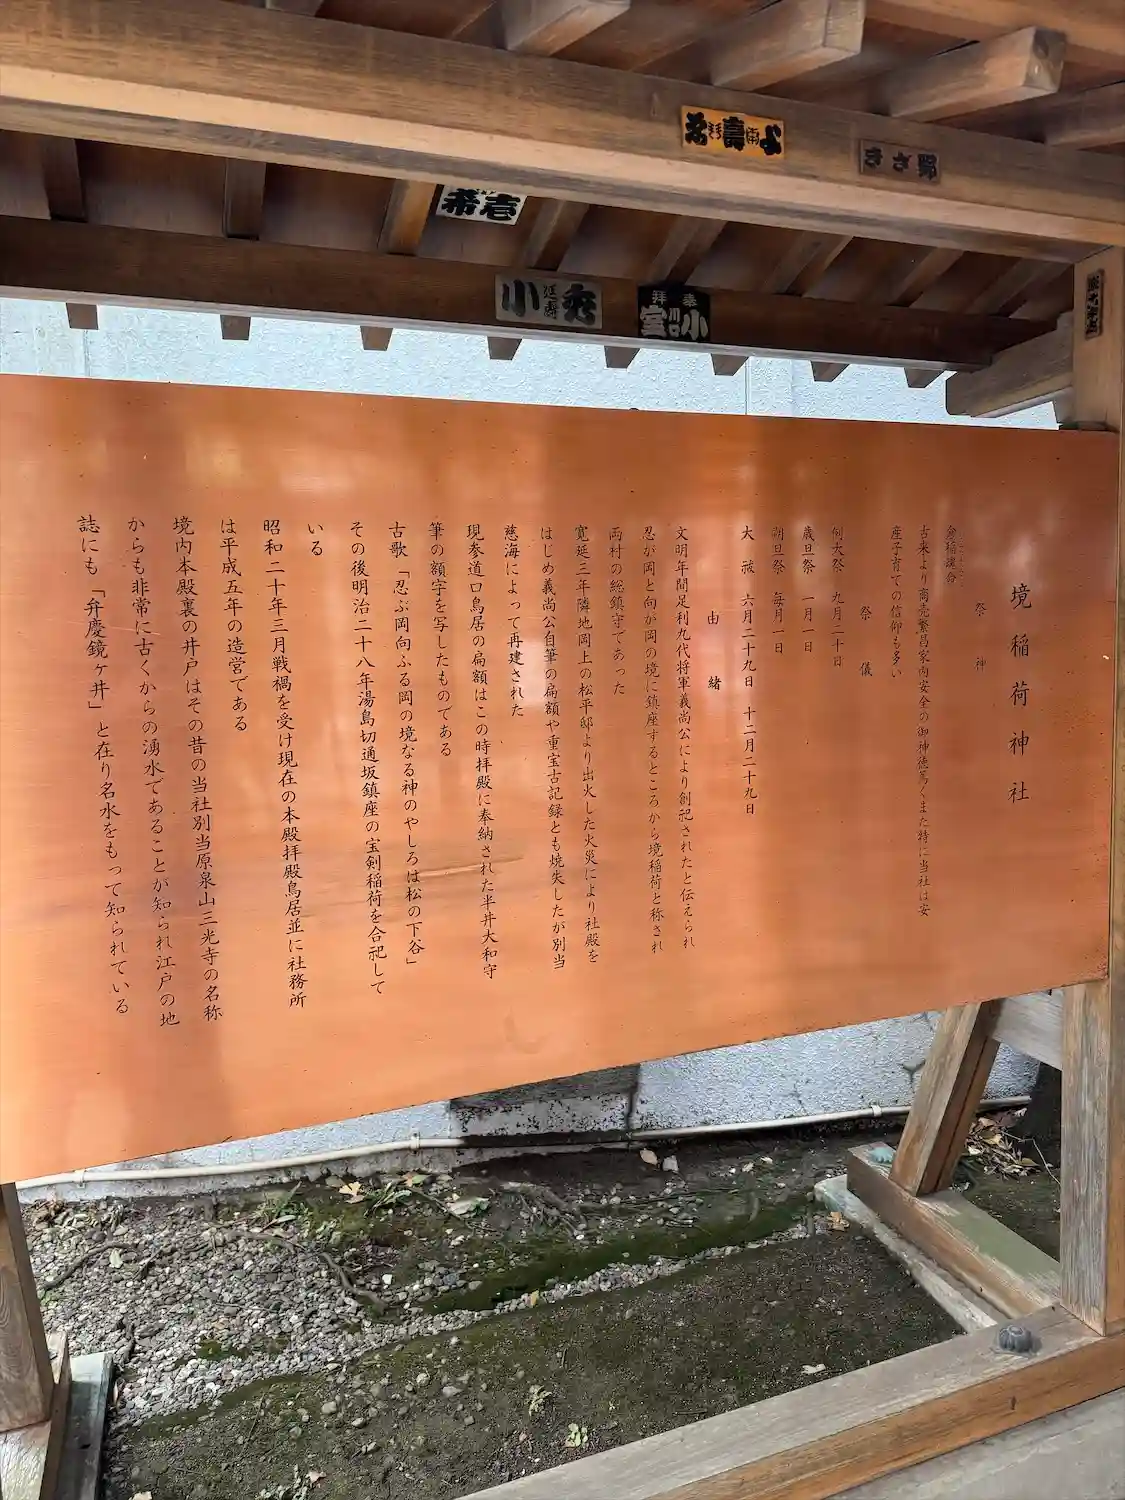 境稲荷神社
祭神
倉稲魂命
古来より商売繁昌家内安全の御神徳篤くまた特に当社は安
産子育ての信仰も多い
祭儀
例大祭 九月二十日
歳旦祭 一月一日
朔旦祭 毎月一日
大祓 六月二十九日 十二月二十九日
由緒
文明年間足利九代将軍義尚公により創祀されたと伝えられ
忍が岡と向が岡の境に鎮座するところから境稲荷と称され
両村の総鎮守であった
寛延三年隣地岡上の松平邸より出火した火災により社殿を
はじめ義尚公自筆の扁額や重宝古記録とも焼失したが別当
慈海によって再建された
現参道口鳥居の扁額はこの時拝殿に奉納された半井大和守
筆の額字を写したものである
古歌「忍ぶ岡向ふる岡の境なる神のやしろは松の下谷」
その後明治二十八年湯島切通坂鎮座の宝剣稲荷を合祀して
いる
昭和二十年三月戦禍を受け現在の本殿拝殿鳥居並に社務所
は平成五年の造営である
境内本殿裏の井戸はその昔の当社別当原泉山三光寺の名称
からも非常に古くからの湧水であることが知られ江戸の地
誌にも「弁慶鏡ヶ井」と在り名水をもって知られている
きさ野
希壱
小延寿秀
奉拝
川口
小室